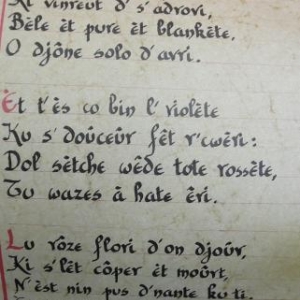 Ki vinreut d' s'adrovi,
Bèle èt pure èt blankète,
O djône solo d'avri.
Èt t'ès co bin l' violète
Ku s' douceûr fêt r'cwèri:
Dol sètche wêde tote rossète,
Tu wazes à hate èri.
Lu rôze flori d'on djoûr,
Ki s'lêt côper èt moûrt,
N'èst nin pus d'nante ku ti.